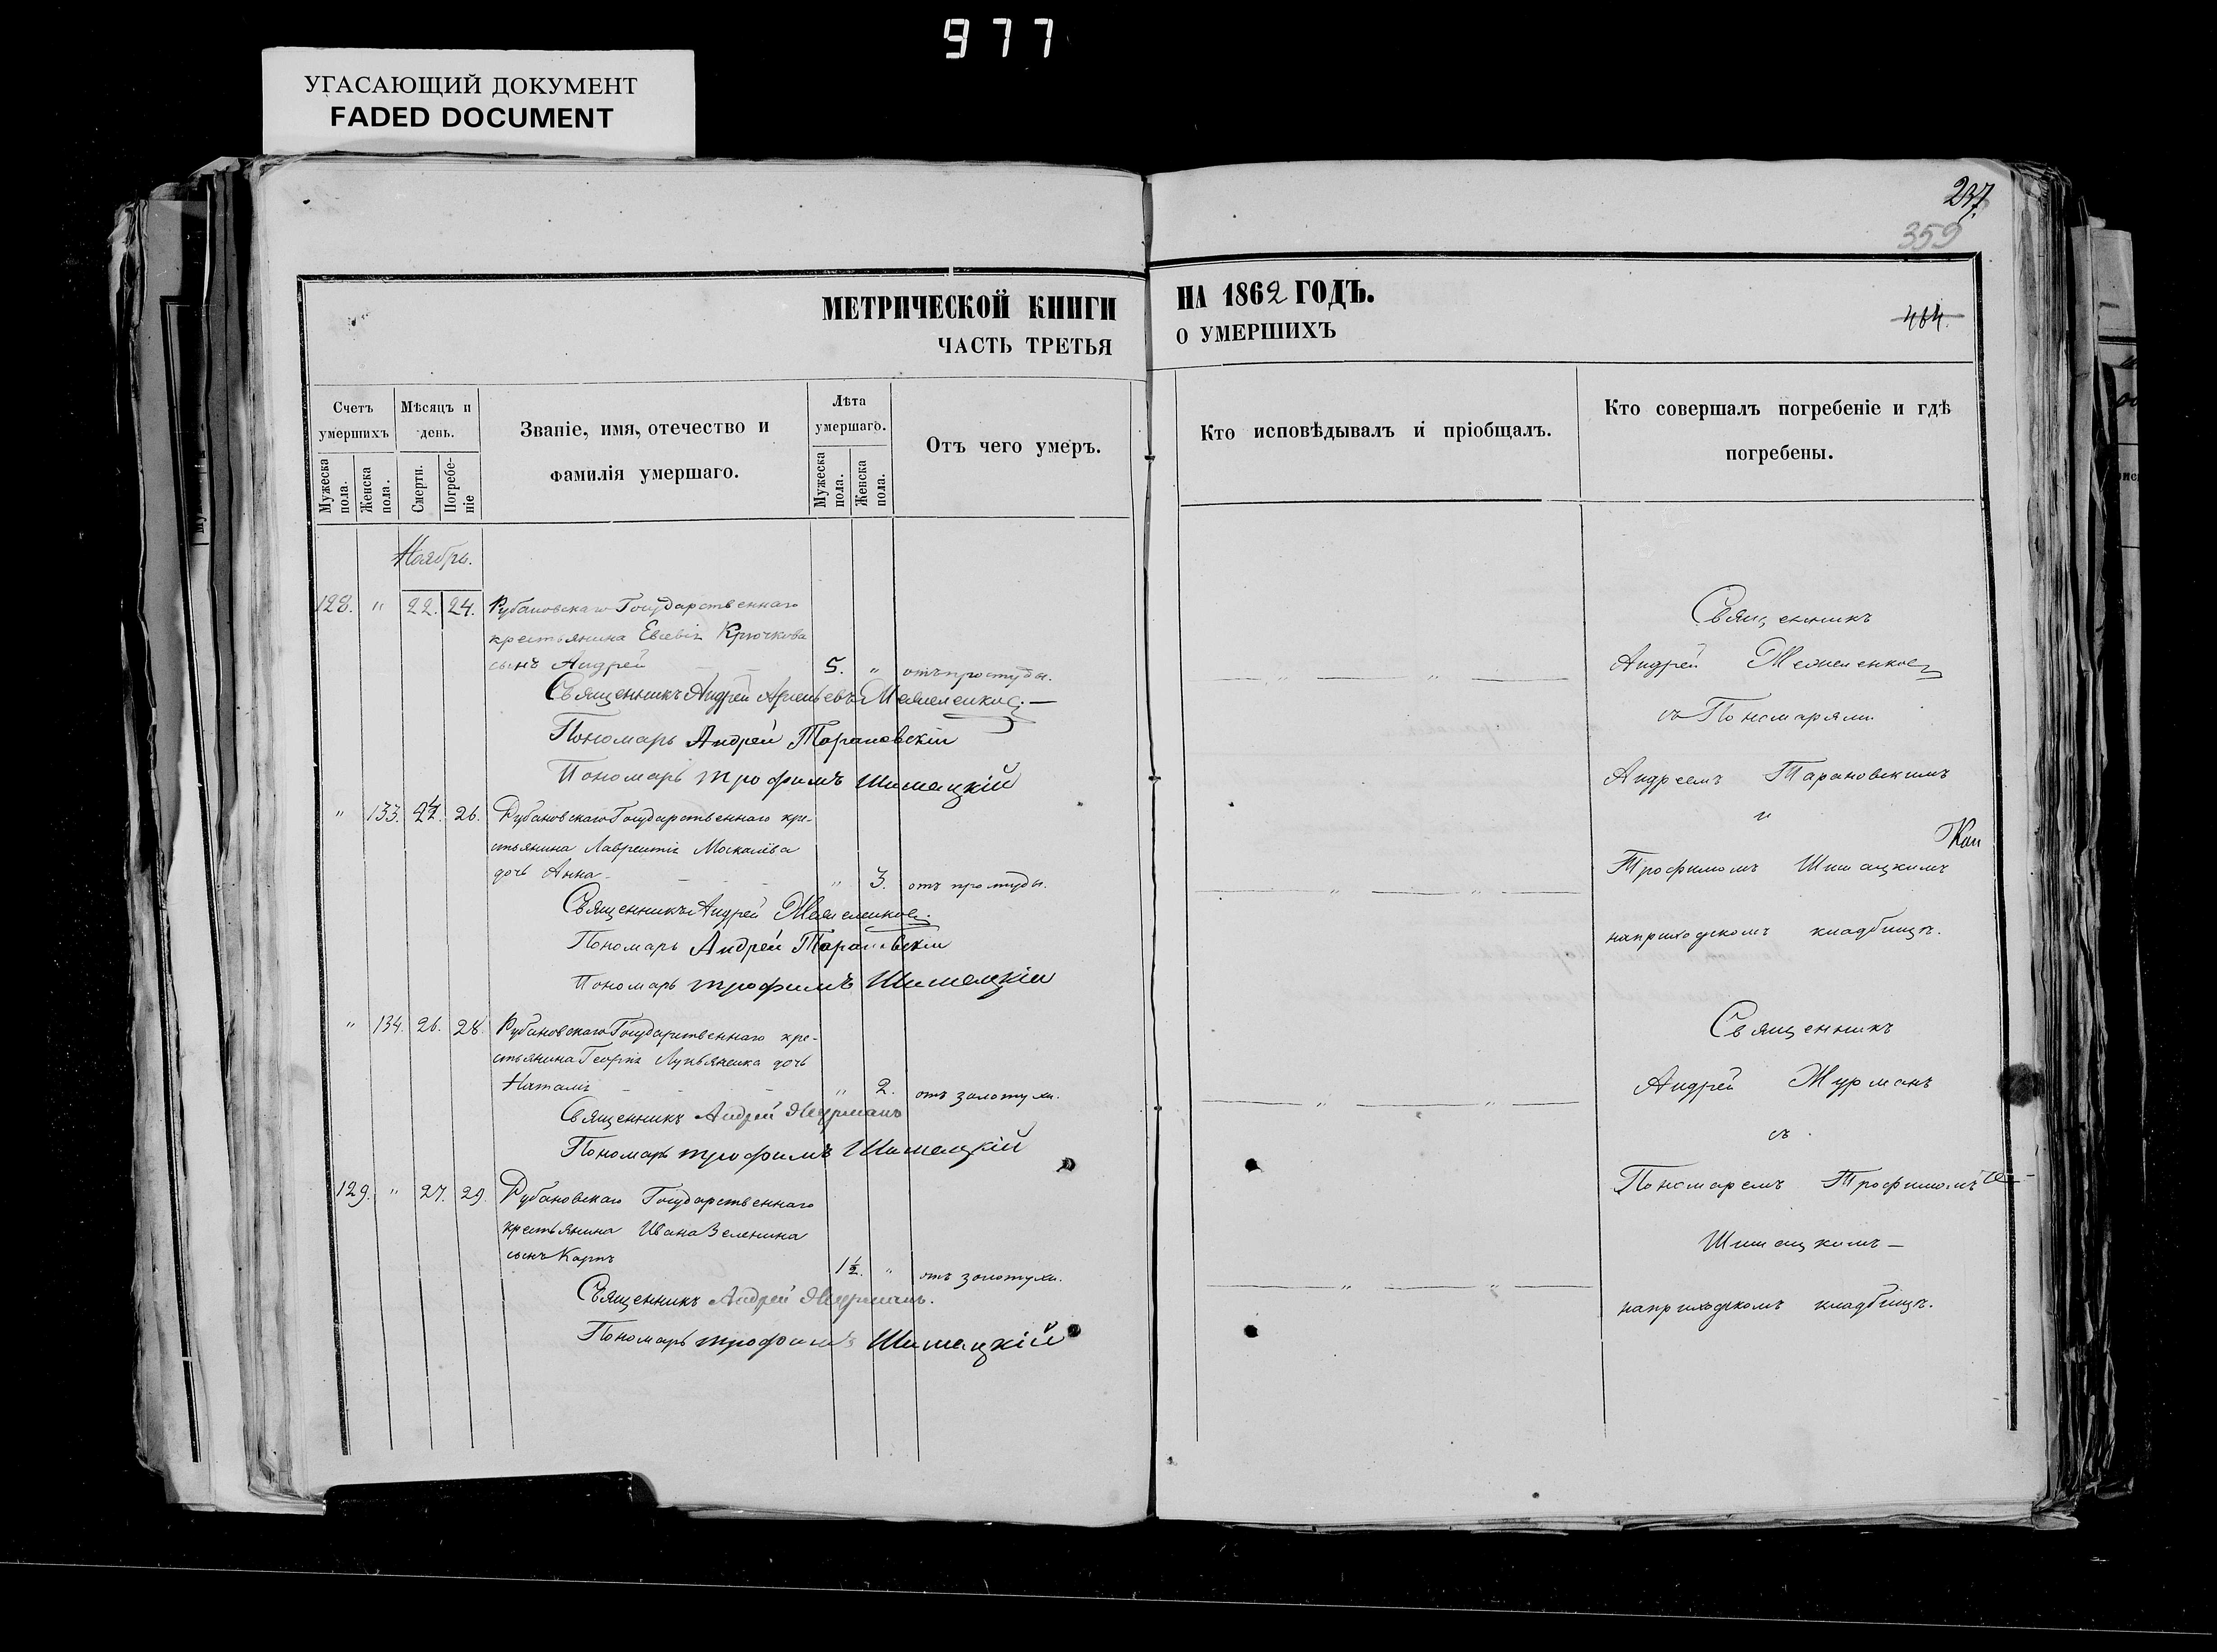 977
УГАСАЮЩИЙ ДОКУМЕНТ
FADED DOCUMENT
237.
359
МЕТРИЧЕСКОЙ КНИГИ НА 1862 ГОДЪ.
464.
ЧАСТЬ ТРЕТЬЯ О УМЕРШИХЪ
Счетъ умершихъ
Мѣсяцъ и день.
Званіе, имя, отечество и фамилія умершаго.
Лѣта умершаго.
Отъ чего умеръ.
Кто исповѣдывалъ и пріобщалъ.
Кто совершалъ погребеніе и гдѣ погребены.
Мужеска пола.
Женска пола.
Смерти.
Погребеніе
Мужеска пола.
Женска пола.
Ноябрь.
128. " 22. 24. Рубановскаго Государственнаго
крестьянина Евсевія Крючкова
сынъ Андрей 5. " отъ простуды.
Священникъ Андрей
Пономарь Андрей Тарановскій
Пономарь Трофимъ Шишацкій
" 133. 24. 26. Рубановскаго Государственнаго кре-
стьянина Лаврентія Москалёва
дочь Анна " 3. отъ простуды.
Священникъ Андрей
Пономарь Андрей Тарановскій
Пономарь Трофимъ Шишацкій
" 134. 26. 28. Рубановскаго Государственнаго кре-
стьянина Георгія Лукьяненка дочь
Наталія " 2. отъ золотухи.
Священникъ Андрей Журманъ
Пономарь Трофимъ Шишацкій
129. " 27. 29. Рубановскаго Государственнаго
крестьянина Ивана Зеленина
сынъ Карпъ 1½. " отъ золотухи.
Священникъ Андрей Журманъ.
Пономарь Трофимъ Шишацкій
Священникъ
Андрей
съ Пономарями
Андреемъ Тарановскимъ
и
Трофимомъ Шишацкимъ
на приходскомъ кладбищѣ.
Священникъ
Андрей Журманъ
съ
Пономаремъ Трофимомъ
Шишацкимъ
на приходскомъ кладбищѣ.